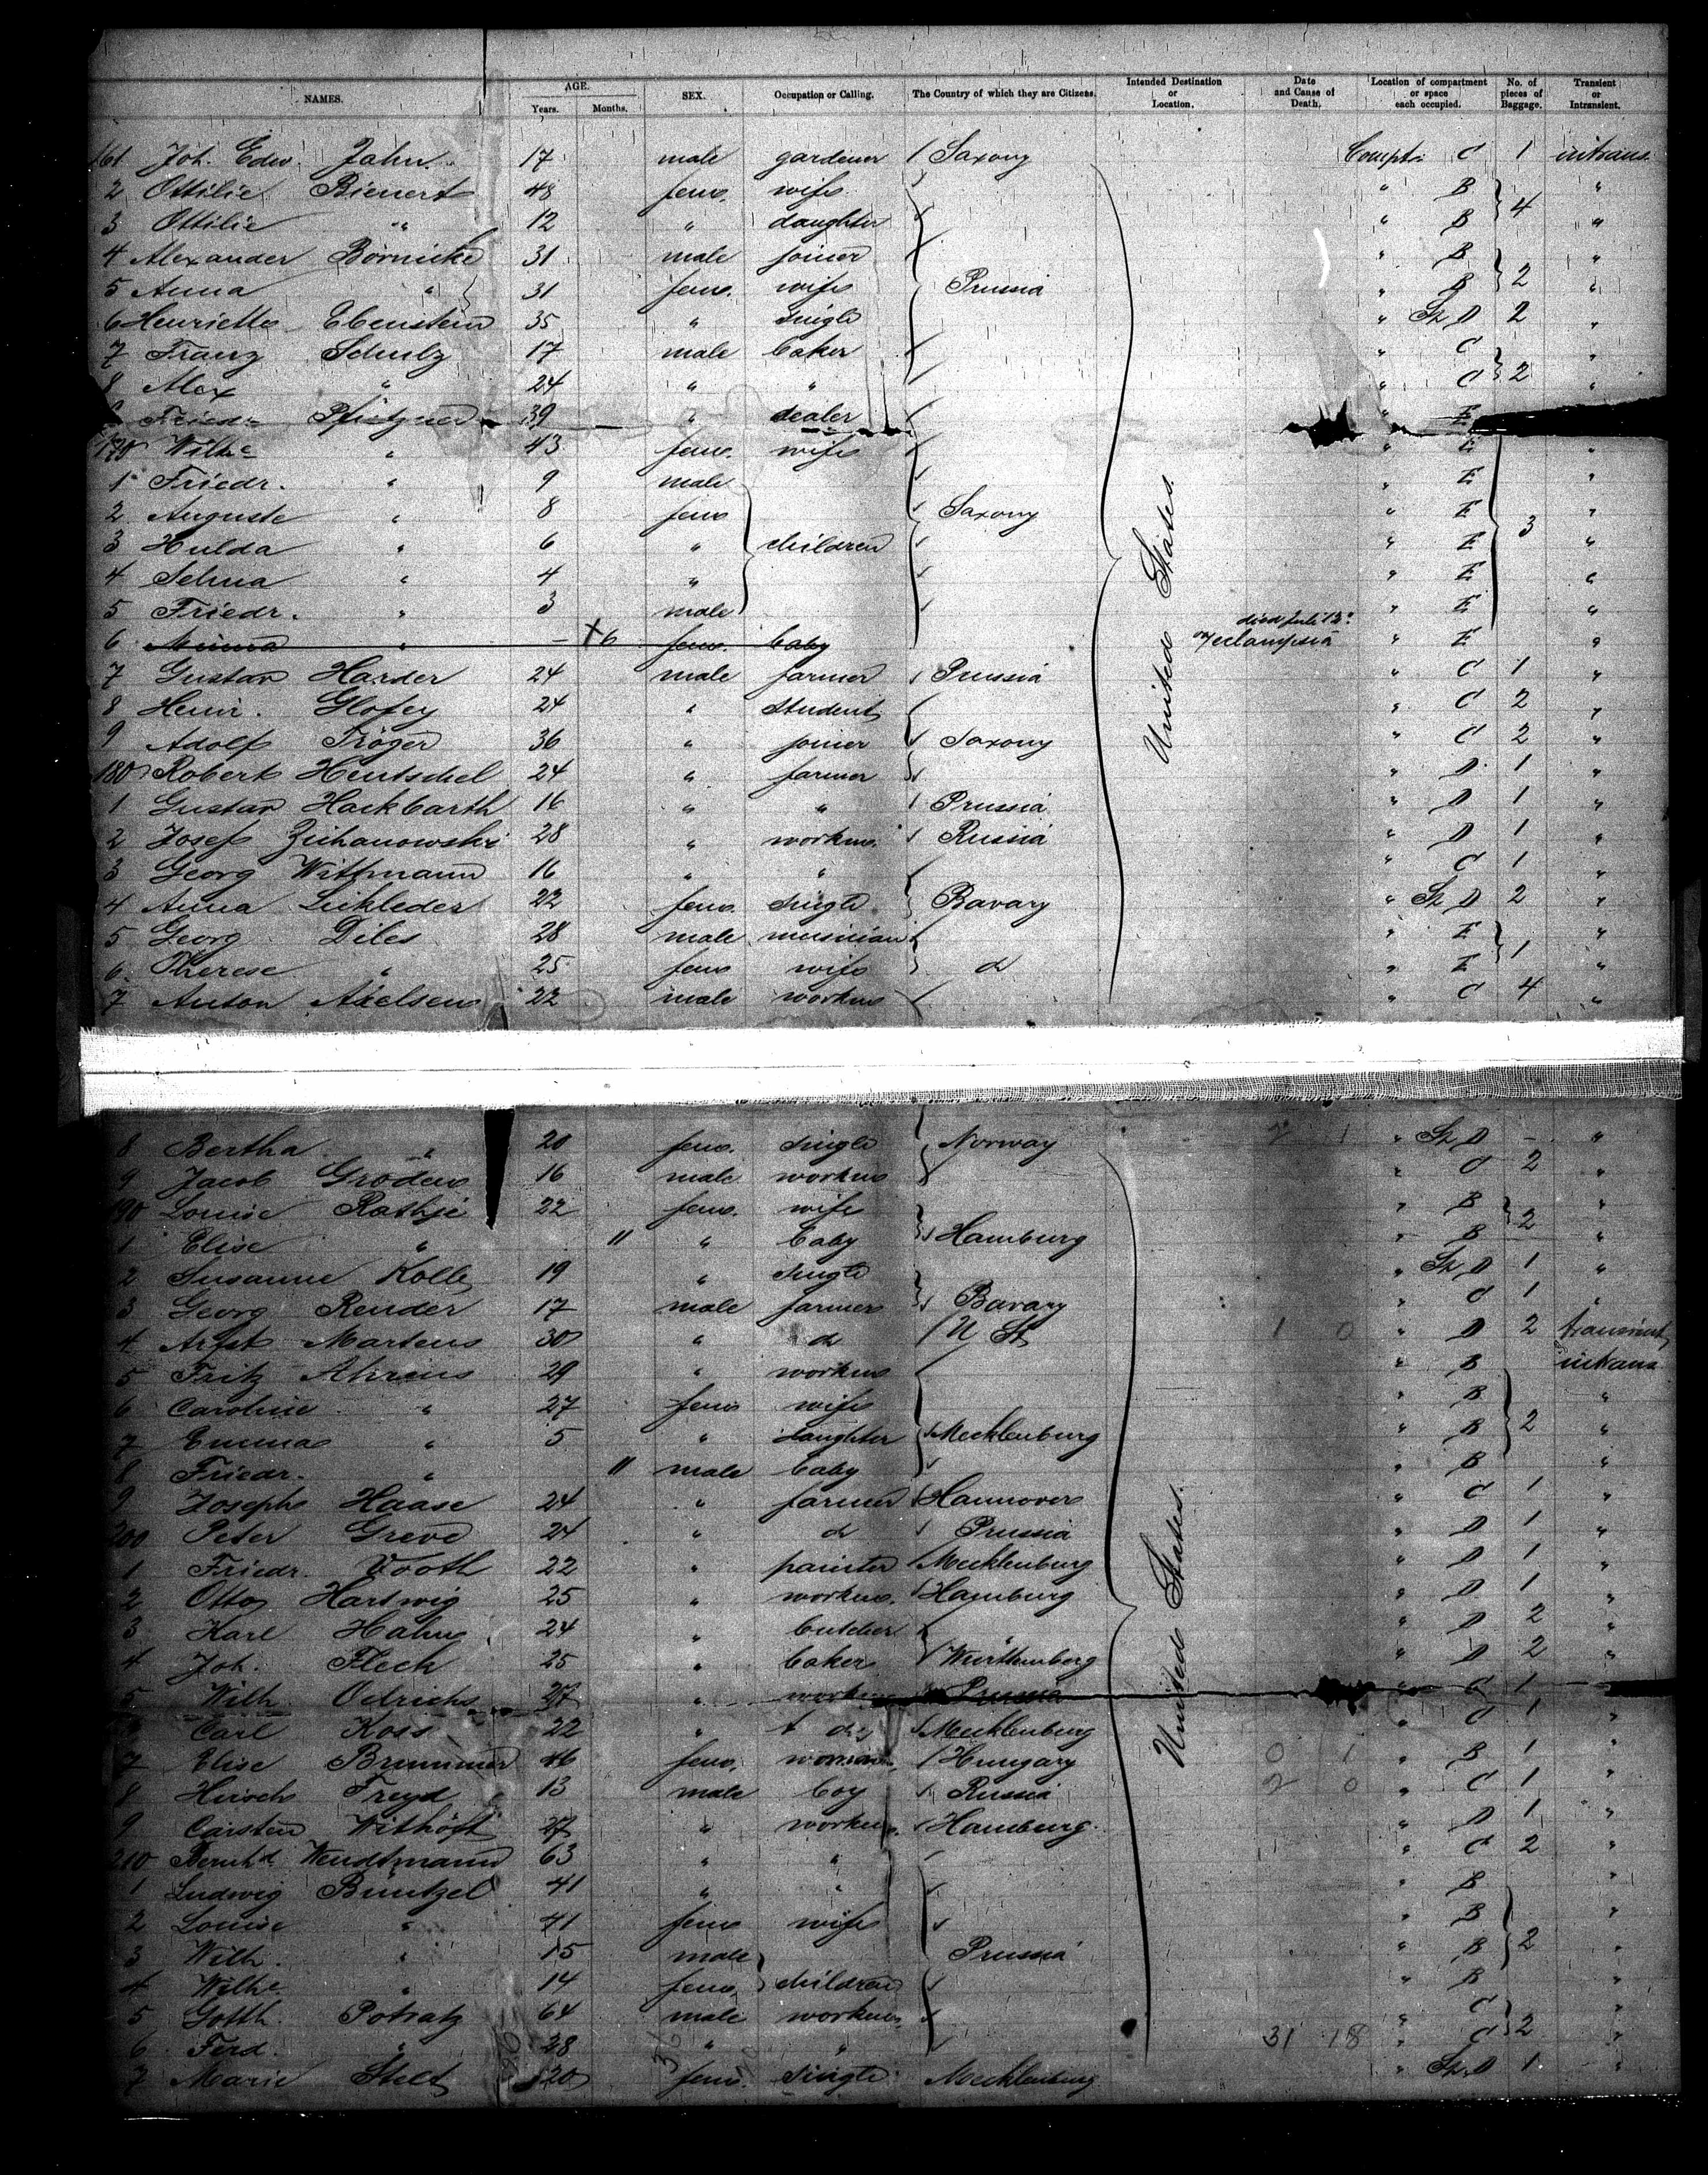 NAMES. AGE. Years. Months. SEX. Occupation or Calling. The Country of which they are Citizens. Intended Destination or Location. Date and Cause of Death. Location of compartment or space each occupied. No. of pieces of Baggage. Transient or Intransient.
161 Joh. Edw. Jahn 17 male gardener Saxony Compt. C 1 intrans.
2 Ottilie Bienert 48 fem. wife " B 4 "
3 Ottilie " 12 " daughter " B "
4 Alexander Börnicke 31 male joiner " B 2 "
5 Anna " 31 fem. wife Prussia " B "
6 Henriette Ebenstein 35 " single " D 2 "
7 Franz Schulz 17 male baker " C 2 "
8 Alex " 24 " " " C "
Friedr. Pfützner 39 " dealer " E
170 Wilhe " 43 fem. wife " E "
1 Friedr. " 9 male " E "
2 Auguste " 8 fem Saxony " E "
3 Hulda " 6 " children " E 3 "
4 Selma " 4 " " E "
5 Friedr. " 3 male " E "
6 Minna " - 6 fem. baby died Juli 12. eclampsia " E "
7 Gustav Harder 24 male farmer Prussia " C 1 "
8 Heinr. Glofey 24 " student " C 2 "
9 Adolf Tröger 36 " joiner Saxony " C 2 "
180 Robert Hentschel 24 " farmer " D 1 "
1 Gustav Hackbarth 16 " " Prussia " D 1 "
2 Josef 28 " workm. Russia " D 1 "
3 Georg Wittmann 16 " " " C 1 "
4 Anna 22 fem. single Bavary " D 2 "
5 Georg Diles 28 male musician " E 1 "
6 Therese " 25 fem wife d " E "
7 Anton Axelsen 22 male workm " C 4 "
United States.
8 Bertha " 20 fem. single Norway " D - "
9 Jacob Groden 16 male workm " C 2 "
190 Louise Rathje 22 fem. wife " B 2 "
1 Elise " 11 " baby Hamburg " B "
2 Susanne Kolb 19 " single " D 1 "
3 Georg Render 17 male farmer Bavary " C 1 "
4 Martens 30 " d U St 1 0 " D 2 transient
5 Fritz Ahrens 29 " workm " B intrans
6 Caroline " 27 fem wife " B 2 "
7 Emma " 5 " daughter Mecklenburg " B "
8 Friedr. " 11 male baby " B "
9 Joseph Haase 24 " farmer Hannover " C 1 "
200 Peter Greve 24 " d Prussia " D 1 "
1 Friedr. Vooth 22 " painter Mecklenburg " D 1 "
2 Otto Hartwig 25 " workm. Hamburg " D 1 "
3 Karl Hahn 24 " butcher " D 2 "
4 Joh. Fleck 25 " baker Würthemberg " D 2 "
5 Wilh. Oelrichs 27 " workm Prussia " C 1
Carl Koss 22 " d Mecklenburg " C 1 "
7 Elise Brummer 46 fem. Hungary 0 1 " B 1 "
8 Hirsch Freyd 13 male boy Russia 2 0 " C 1 "
9 Carsten Withöft 27 " workm. Hamburg " D 1 "
210 Bernhd Wendtmann 63 " " " C 2 "
1 Ludwig Büntzel 41 " " " B "
2 Louise " 41 fem wife " B 2 "
3 Wilh. " 15 male Prussia " B "
4 Wilhe " 14 fem. children " B "
5 Gotth. Potratz 64 male workm. " C 2 "
6 Ferd. " 28 " " 31 18 " C "
7 Marie 20 fem. single Mecklenburg " D 1 "
United States.